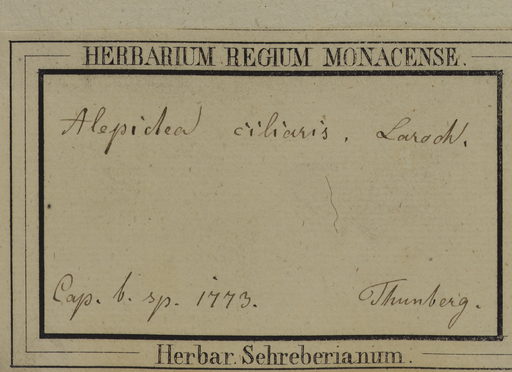 HERBARIUM REGIUM MONACENSE.
Alepidea ciliaris. Laroch.
Cap. b. sp. 1773. Thunberg.
Herbar. Schreberianum.